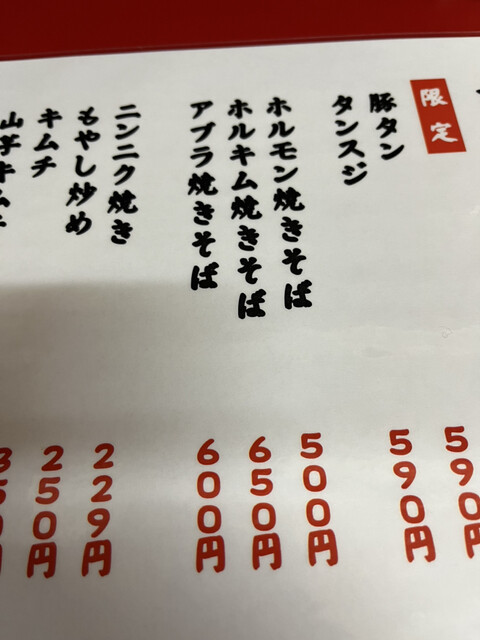 限定
豚タン 590円
タンスジ 590円
ホルモン焼きそば 500円
ホルキム焼きそば 650円
アブラ焼きそば 600円
ニンニク焼き 229円
もやし炒め 250円
キムチ